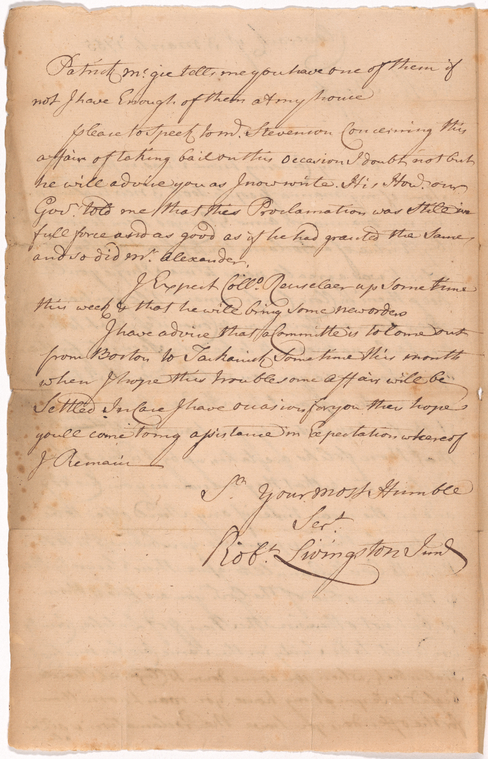 Patrick mc.gie tells me you have one of them if
not I have Enough of them at my house
please to speek to mr. Stevenson Concerning this
affair of taking bail on this occasion I doubt not but
he will advise you as I now write. His Honr. our
Govr. told me that this Proclamation was still in
full force and as good as if he had granted the same
and so did mr. Alexander.
I Expect Collo. Renselaer up some time
this week & that he will bring some new orders
I have advice that a Committe is to Come out
from Boston to Tachanick Sometime this month
when I hope this troublesome affair will be
Settled In Case I have occasion for you then hope
youll come to my assistance in Expectation whereof
I Remain
Sr. Your most Humble
Sert.
Robt. Livingston Junr